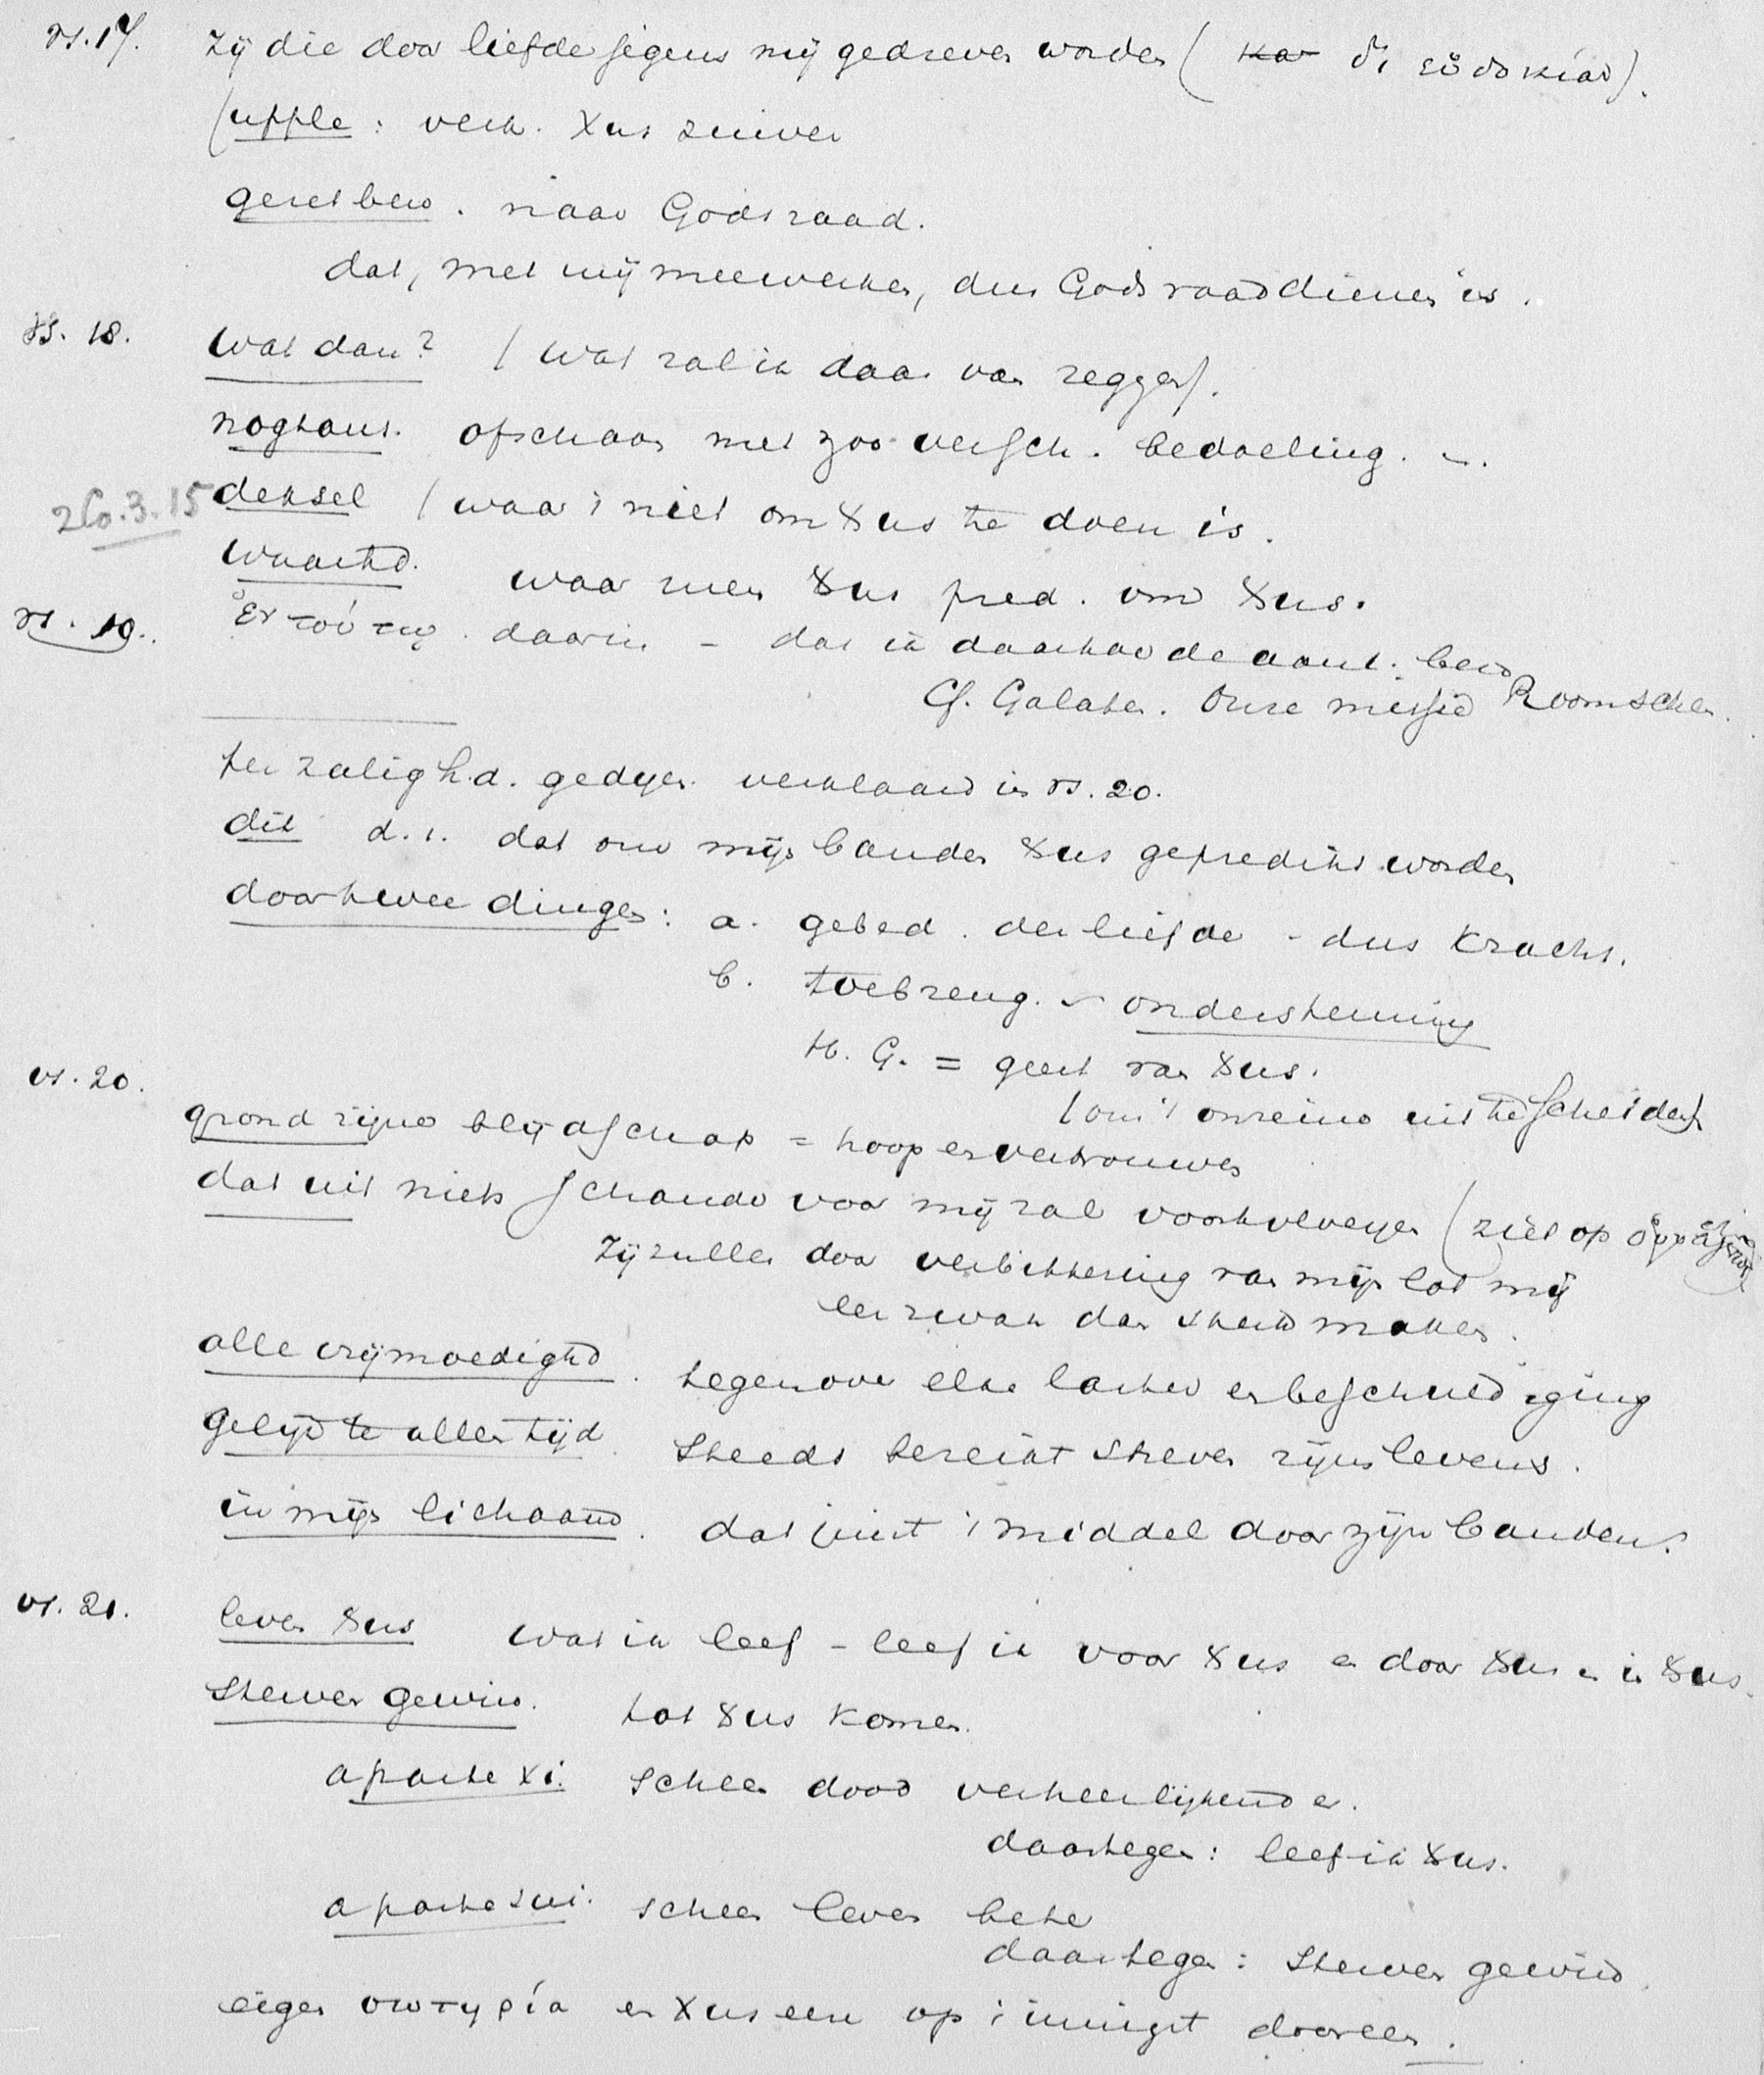 vs. 17. Zij die door liefde jegens mij gedreven worden ( δι' εὐδοκίαν).
supple: verk. Xus zuiver
gezet ben. naar Gods raad.
dat, met mij meewerken, dus Gods raad dienen is.
vs. 18. Wat dan? (wat zal ik daar van zeggen).
nogtans. ofschoon met zoo versch. bedoeling.
2 Co. 3. 15 deksel (waar 't niet om Xus te doen is.
waarhd. waar men Xus pred. om Xus.
vs. 19. Ἐν τούτῳ. daarin - dat ik daarvan de aanl. ben
Cf. Galaten. Onze missie Roomschen.
ter zaligh.d. gedijen. verklaard in vs. 20.
dit d.i. dat om mijn banden Xus gepredikt worden
door twee dingen: a. gebed. der liefde - dus kracht.
b. toebreng. v. ondersteuning
H. G. = geest van Xus.
(om 't onreine uit te scheiden)
vs. 20. grond zijner blijdschap = hoop en vertrouwen
dat uit niets schande voor mij zal voortvloeyen (ziet op
Zij zullen door verbittering van mijn lot mij
eer zwak dan sterk maken.
alle vrijmoedighd. tegenover elke laster en beschuldiging
gelijk te allen tijd. Steeds bereikt streven zijns levens.
in mijn lichaam. dat juist 't middel door zijn banden.
vs. 21. leven Xus wat ik leef - leef ik voor Xus en door Xus en in Xus.
Sterven gewin. tot Xus komen.
a parte Xi. scheen dood verheerlijkender.
daartegen: leef ik Xus.
a parte sui. scheen leven beter
daartegen: Sterven gewin.
eigen σωτηρία en Xus eere op 't innigst dooreen.